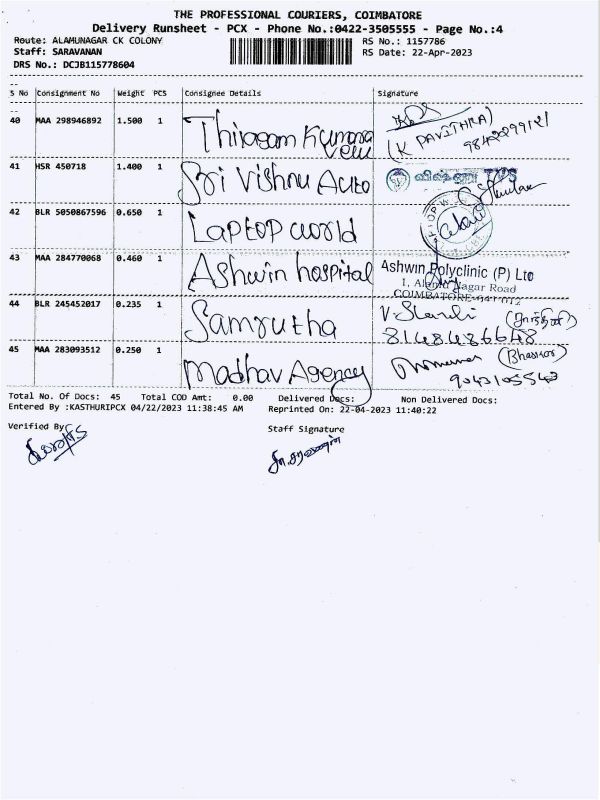 THE PROFESSIONAL COURIERS, COIMBATORE
Delivery Runsheet - PCX - Phone No.:0422-3505555 - Page No.:4
Route: ALAMUNAGAR CK COLONY
RS No.: 1157786
Staff: SARAVANAN
RS Date: 22-Apr-2023
DRS No.: DCJB115778604
S No Consignment No Weight PCS Consignee Details Signature
40 MAA 298946892 1.500 1 Thiragam Kumara
velu
(K PAVITHRA)
9842299121
41 HSR 450718 1.400 1 Sri Vishnu Auto
விஷ்ணு
42 BLR 5050867596 0.650 1 Laptop world
43 MAA 284770068 0.460 1 Ashwin hospital
Ashwin Polyclinic (P) Ltd
1, Alamu Nagar Road
COIMBATORE-641 012
44 BLR 245452017 0.235 1 Samrutha
8148486648
45 MAA 283093512 0.250 1 Madhav Agency
(Bhaskor)
9043105543
Total No. Of Docs: 45 Total COD Amt: 0.00 Delivered Docs: Non Delivered Docs:
Entered By :KASTHURIPCX 04/22/2023 11:38:45 AM Reprinted On: 22-04-2023 11:40:22
Verified By
Staff Signature